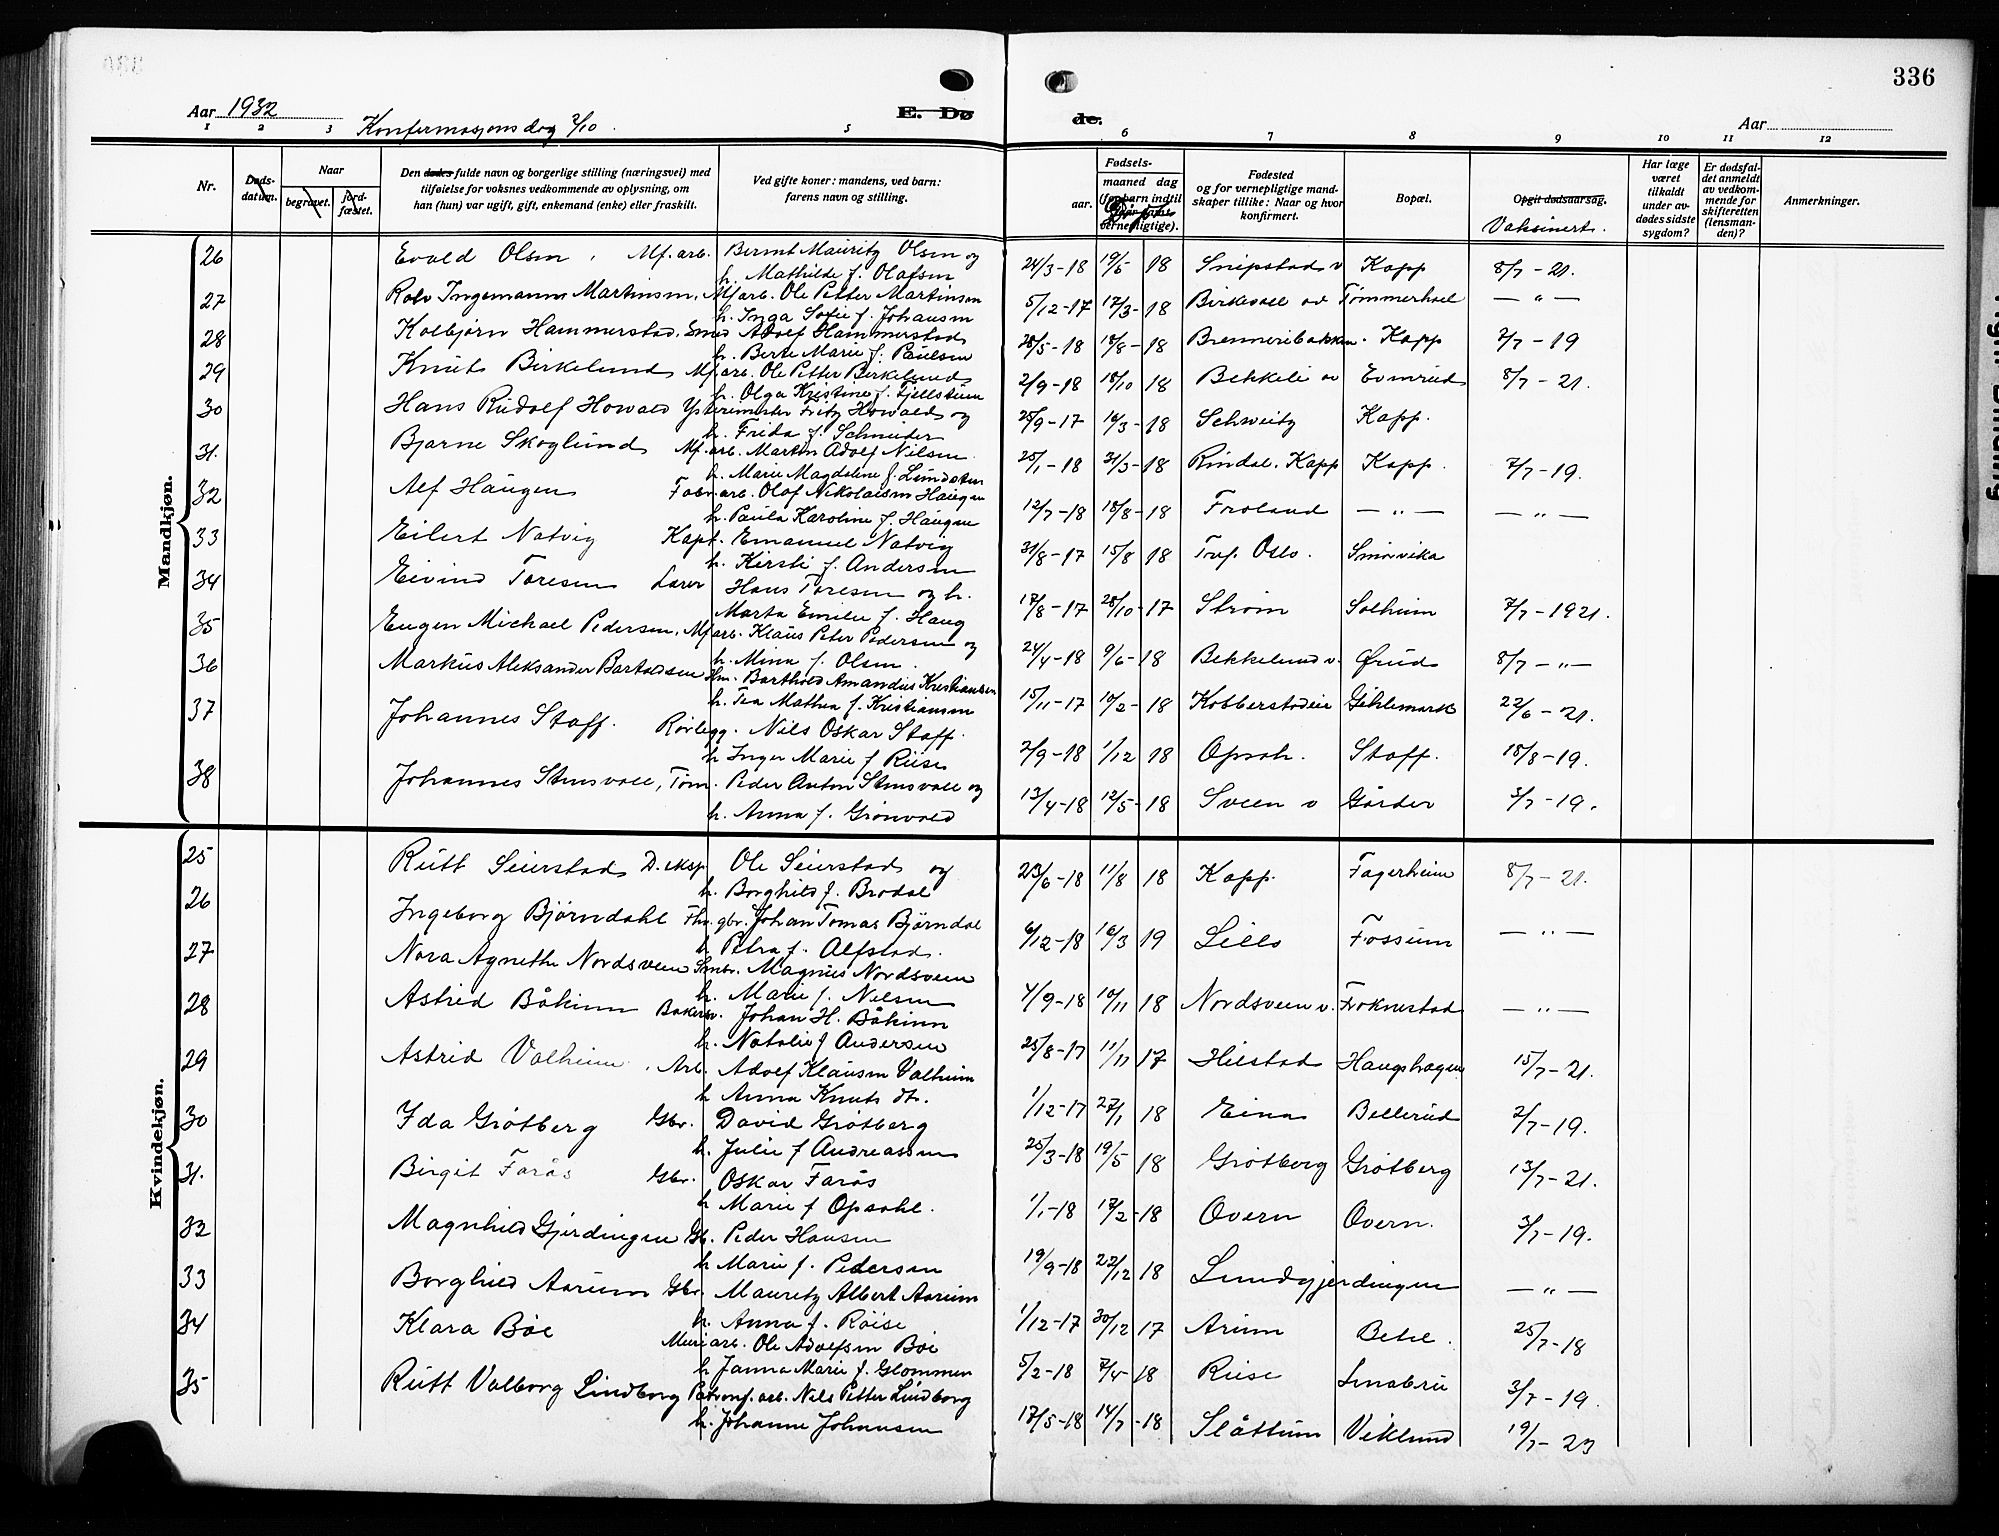 336
Aar 1932
Konfirmasjonsdag 2/10.
E. Dø
de.
Aar
1 2 3 5 6 7 8 9 10 11 12
Nr.
Døds-
datum.
Naar
begravet.
jord-
fæstet.
Den dødes fulde navn og borgerlige stilling (næringsvei) med
tilføielse for voksnes vedkommende av oplysning, om
han (hun) var ugift, gift, enkemand (enke) eller fraskilt.
Ved gifte koner: mandens, ved barn:
farens navn og stilling.
Fødsels-
aar.
maaned dag
Fødested
og for vernepligtige mand-
skaper tillike: Naar og hvor
konfirmert.
Bopæl.
Opgit dødsaarsag.
Vaksinert.
Har læge
været
tilkaldt
under av-
dødes sidste
sygdom?
Er dødsfal-
det anmeldt
av vedkom-
mende for
skifteretten
(lensman-
den)?
Anmerkninger.
Mandkjøn.
26 Evald Olsen, Mf. arb. Bernt Mauritz Olsen og
h. Mathilde f. Olafsen 24/3-18 19/5 18 Snipstad v Kapp 8/7-21.
27 Rolv Ingemann Martinsen, Mf arb. Ole Petter Martinsen
h. Inga Sofie f. Johansen 5/12-17 17/3-18 Birkevold v Tømmerhol — " —
28 Kolbjørn Hammerstad, Smed Adolf Hammerstad
h. Berte Marie f. Paulsen 28/5-18 18/8-18 Bremeribakken. Kapp 7/7-19
29 Knut Birkelund Mf. arb. Ole Petter Birkelund
h. Olga Kristine f. Fjellstuen 2/9-18 18/10 18 Bekkeli v Evenrud 8/7-21.
30 Hans Rudolf Howald Ysterimester Fritz Howald og
h. Frida f. Schneider 25/9-17 16/3-18 Schweitz Kapp.
31. Bjarne Skoglund Mf. arb. Martin Adolf Nilsen.
h. Marie Magdalene f. Lundsten 25/1-18 31/3-18 Rindal. Kapp Kapp. 7/7-19.
32 Alf Haugen Fabr. arb. Olaf Nikolaisen Haugen
h. Paula Karoline f. Haugen 12/7-18 18/8-18 Froland — " — — " —
33 Eilert Natvig Kapt. Emanuel Natvig
h. Kirsti f. Andersen 31/8-17 15/8 18 Oslo. Smørvika
34 Eivind Toresen Lærer Hans Toresen og h.
Marta Emilie f. Haug 17/8-17 28/10-17 Strøm Solheim 7/7-1921.
35 Eugen Michael Pedersen, Mf arb. Klaus Peter Pedersen og
h. Mina f. Olsen. 24/4-18 9/6-18 Bekkelund v. Ørud 8/7- " -
36 Markus Aleksander Bartoldsen Barthold Amandus Kristiansen
h. Tea Mathea f. Kristiansen 15/11-17 10/2-18 Kobberstadeie Gihlemark 22/6-21.
37 Johannes Staff. Rørlegg. Nils Oskar Staff.
h Inger Marie f Riise 2/9-18 1/12 18 Opsah. Staff. 18/8-19.
38 Johannes Stensvold, Tøm. Peder Anton Stensvold og
h. Anna f. Grønvold 13/4-18 12/5-18 Sveen v Gårder 3/7-19.
Kvindekjøn.
25 Rutt Seierstad D. eksp Ole Seierstad og
h. Borghild f. Brodal 23/6-18 11/8 18 Kapp. Fagerheim 8/7-21.
26 Ingeborg Bjørndahl Johan Tomas Bjørndal
h Petra f. Alfstad. 6/12-18 16/3 19 Lills Fossum — " —
27 Nora Agnethe Nordsveen Smbr. Magnus Nordsveen
h. Marie f. Nilsen 4/9-18 10/11 18 Nordsveen v. Froknestad — " —
28 Astrid Båkinn Johan H. Båkinn
h. Natalie f Andersen 25/8-17 11/11 17 Hilstad Haugshagen 15/7-21.
29 Astrid Valheim, Arb. Adolf Klausen Valheim
h Anna Knuts dt. 1/12-17 27/1 18 Eina Bellerud 2/7-19.
30 Ida Grøtberg Gbr. David Grøtberg
h. Julie f Andreassen 25/3-18 19/5 18 Grøtberg Grøtberg 13/7-21.
31. Birgit Farås Gbr. Oskar Farås
h Marie f Opsahl. 1/1-18 17/2-18 Overn Overn. 3/7-19.
32 Magnhild Gjerdingen Gb. Peder Hansen
h Marie f. Pedersen 19/9-18 22/12 18 Lundgjerdingen — " —
33 Borghild Aarum Gbr. Mauritz Albert Aarum
h. Anna f. Røise 1/12-17 30/12 17 Arum Betel. 25/7-18
34 Klara Bøe Meieriarb. Ole Adolfsen Bøe
h Janna Marie f. Glommen 5/2-18 7/4-18 Riise Lensbru 3/7-19.
35 Rutt Valborg Lindborg arb. Nils Petter Lindborg
h. Johanne Johnnsen 17/5-18 14/7-18 Slåttum Viklund 19/7-23